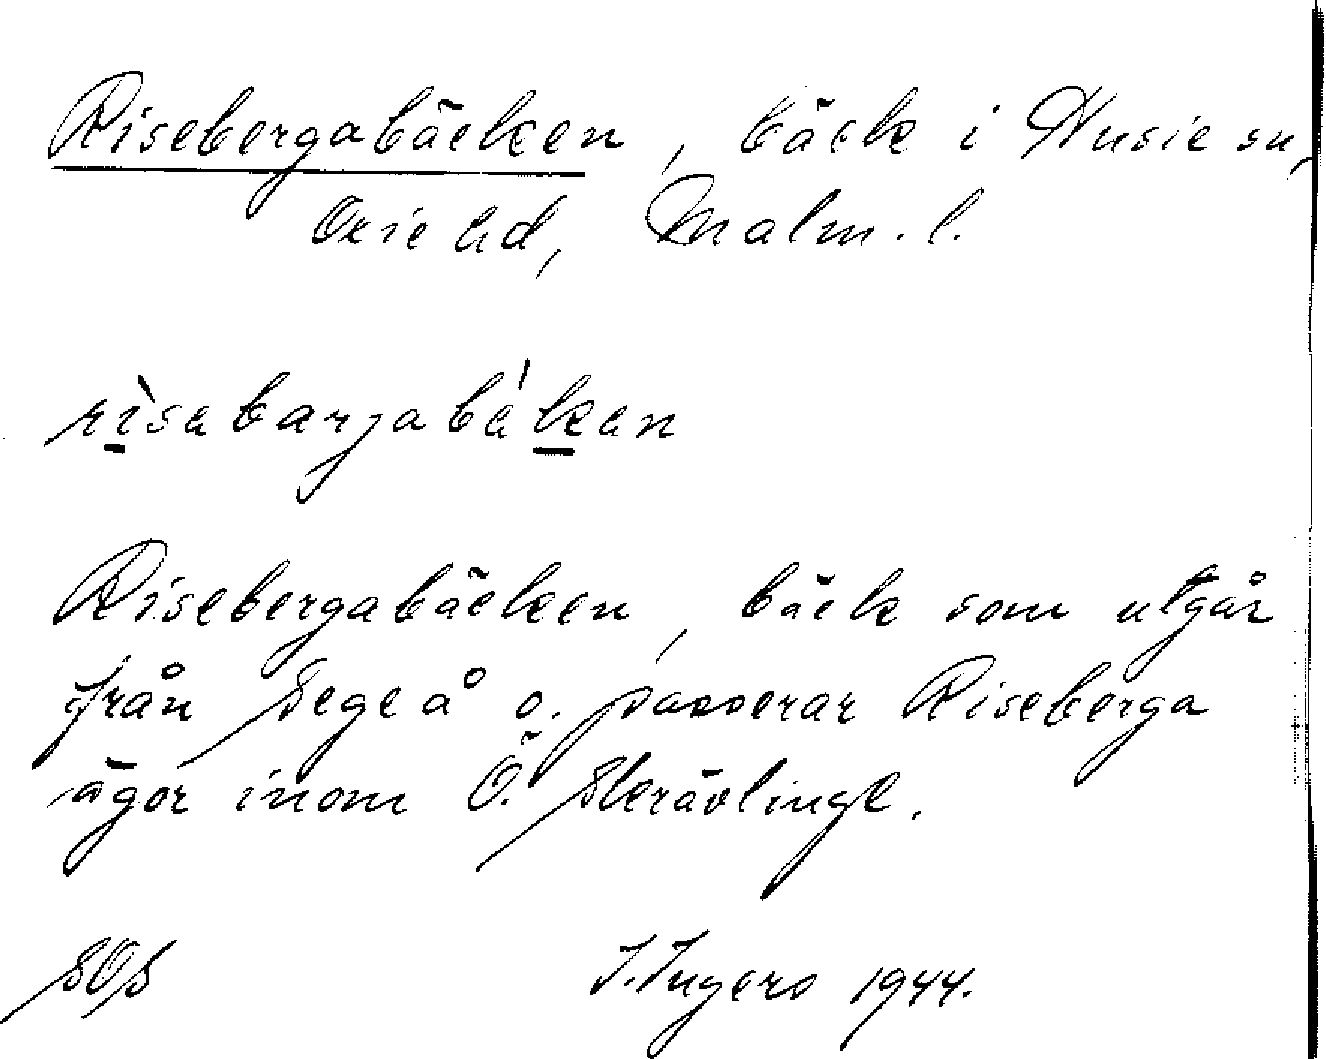 Risebergabäcken, bäck i Husie sn,
Oxie hd, Malm. l.
rìsabarjabá'kan
Risebergabäcken, bäck som utgår
från Sege å o. passerar Riseberga
ägor inom Ö. Skrävlinge.
SOS I. Ingers 1944.